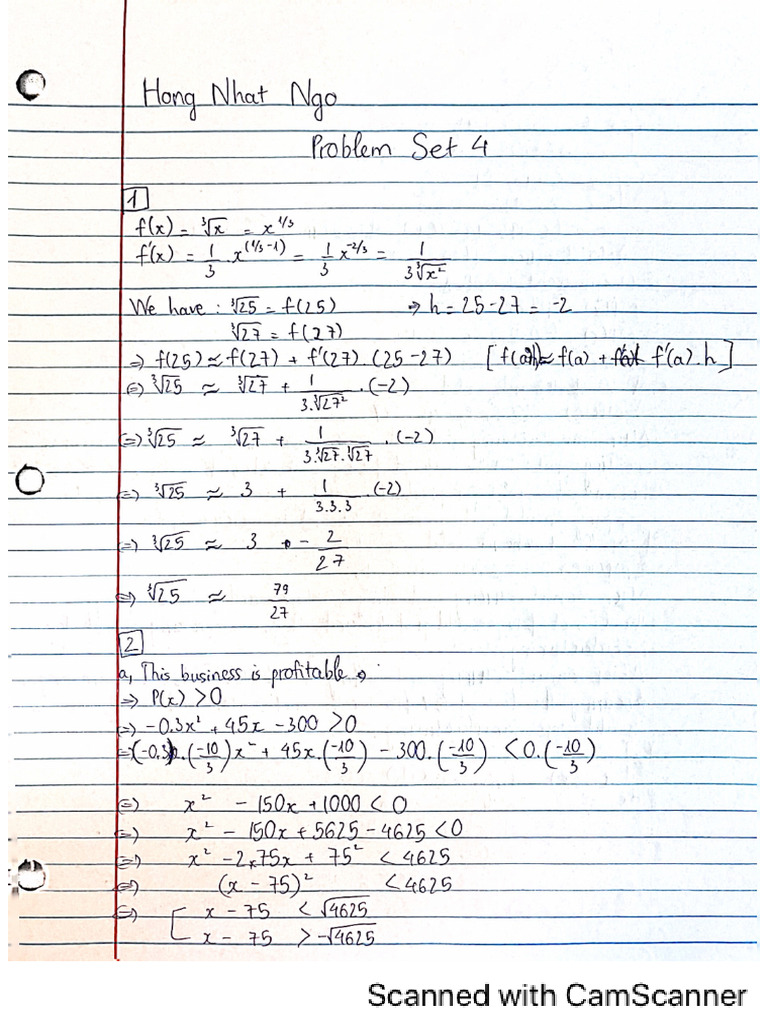 Hong Nhat Ngo
Problem Set 4
1
f(x) = ∛x = x^(1/3)
f'(x) = 1/3 . x^(1/3 - 1) = 1/3 x^(-2/3) = 1/(3∛x²)
We have : ∛25 = f(25) ⇒ h = 25 - 27 = -2
∛27 = f(27)
⇒ f(25) ≈ f(27) + f'(27) . (25 - 27) [ f(a+h) ≈ f(a) + f'(a) . h ]
⇔ ∛25 ≈ ∛27 + 1/(3.∛27²) . (-2)
⇔ ∛25 ≈ ∛27 + 1/(3.∛27.∛27) . (-2)
⇔ ∛25 ≈ 3 + 1/(3.3.3) (-2)
⇔ ∛25 ≈ 3 - 2/27
⇔ ∛25 ≈ 79/27
2
a, This business is profitable
⇒ P(x) > 0
⇔ -0.3x² + 45x - 300 > 0
⇔ (-0.3).(-10/3)x² + 45x.(-10/3) - 300.(-10/3) < 0.(-10/3)
⇔ x² - 150x + 1000 < 0
⇔ x² - 150x + 5625 - 4625 < 0
⇔ x² - 2×75x + 75² < 4625
⇔ (x - 75)² < 4625
⇔ [ x - 75 < √4625
x - 75 > -√4625
Scanned with CamScanner